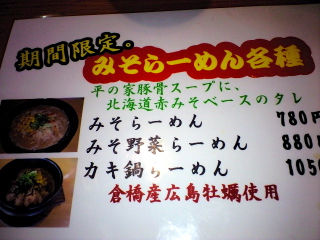 期間限定。
みそらーめん各種
平の家豚骨スープに、
北海道赤みそベースのタレ
みそらーめん 780円
みそ野菜らーめん 880円
カキ鍋らーめん 1050
倉橋産広島牡蠣使用